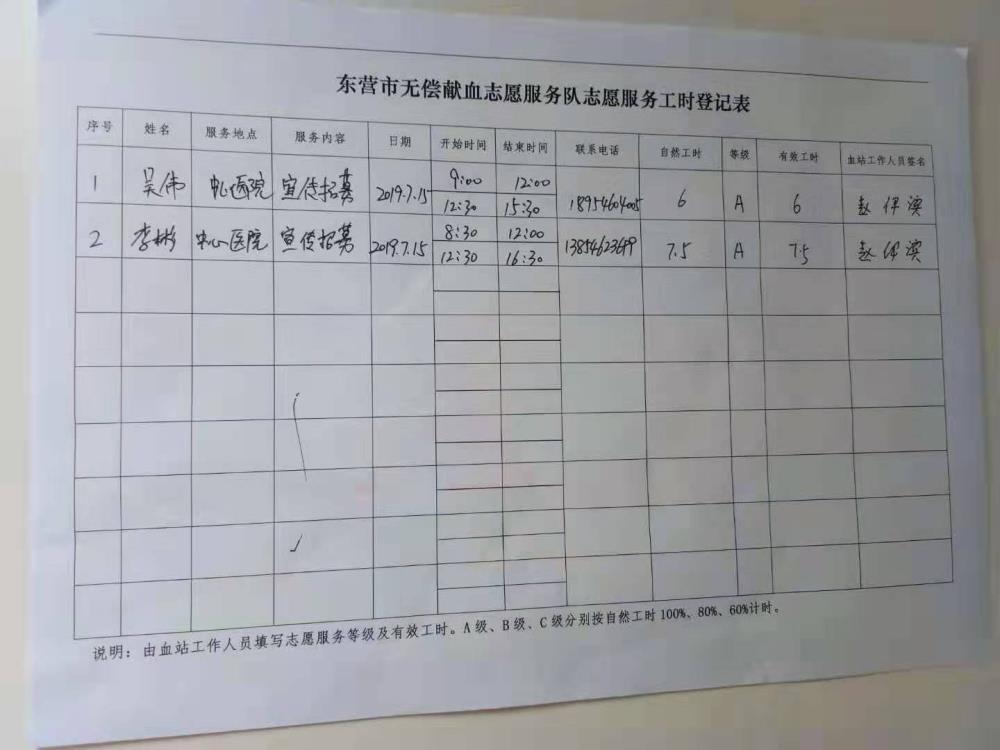 东营市无偿献血志愿服务队志愿服务工时登记表
序号 姓名 服务地点 服务内容 日期 开始时间 结束时间 联系电话 自然工时 等级 有效工时 血站工作人员签名
1 吴伟 中心医院 宣传招募 2019.7.15 9:00 12:00 18954604005 6 A 6 赵
12:30 15:30
2 李彬 中心医院 宣传招募 2019.7.15 8:30 12:00 7.5 A 7.5 赵
12:30 16:30
说明：由血站工作人员填写志愿服务等级及有效工时。A级、B级、C级分别按自然工时100%、80%、60%计时。